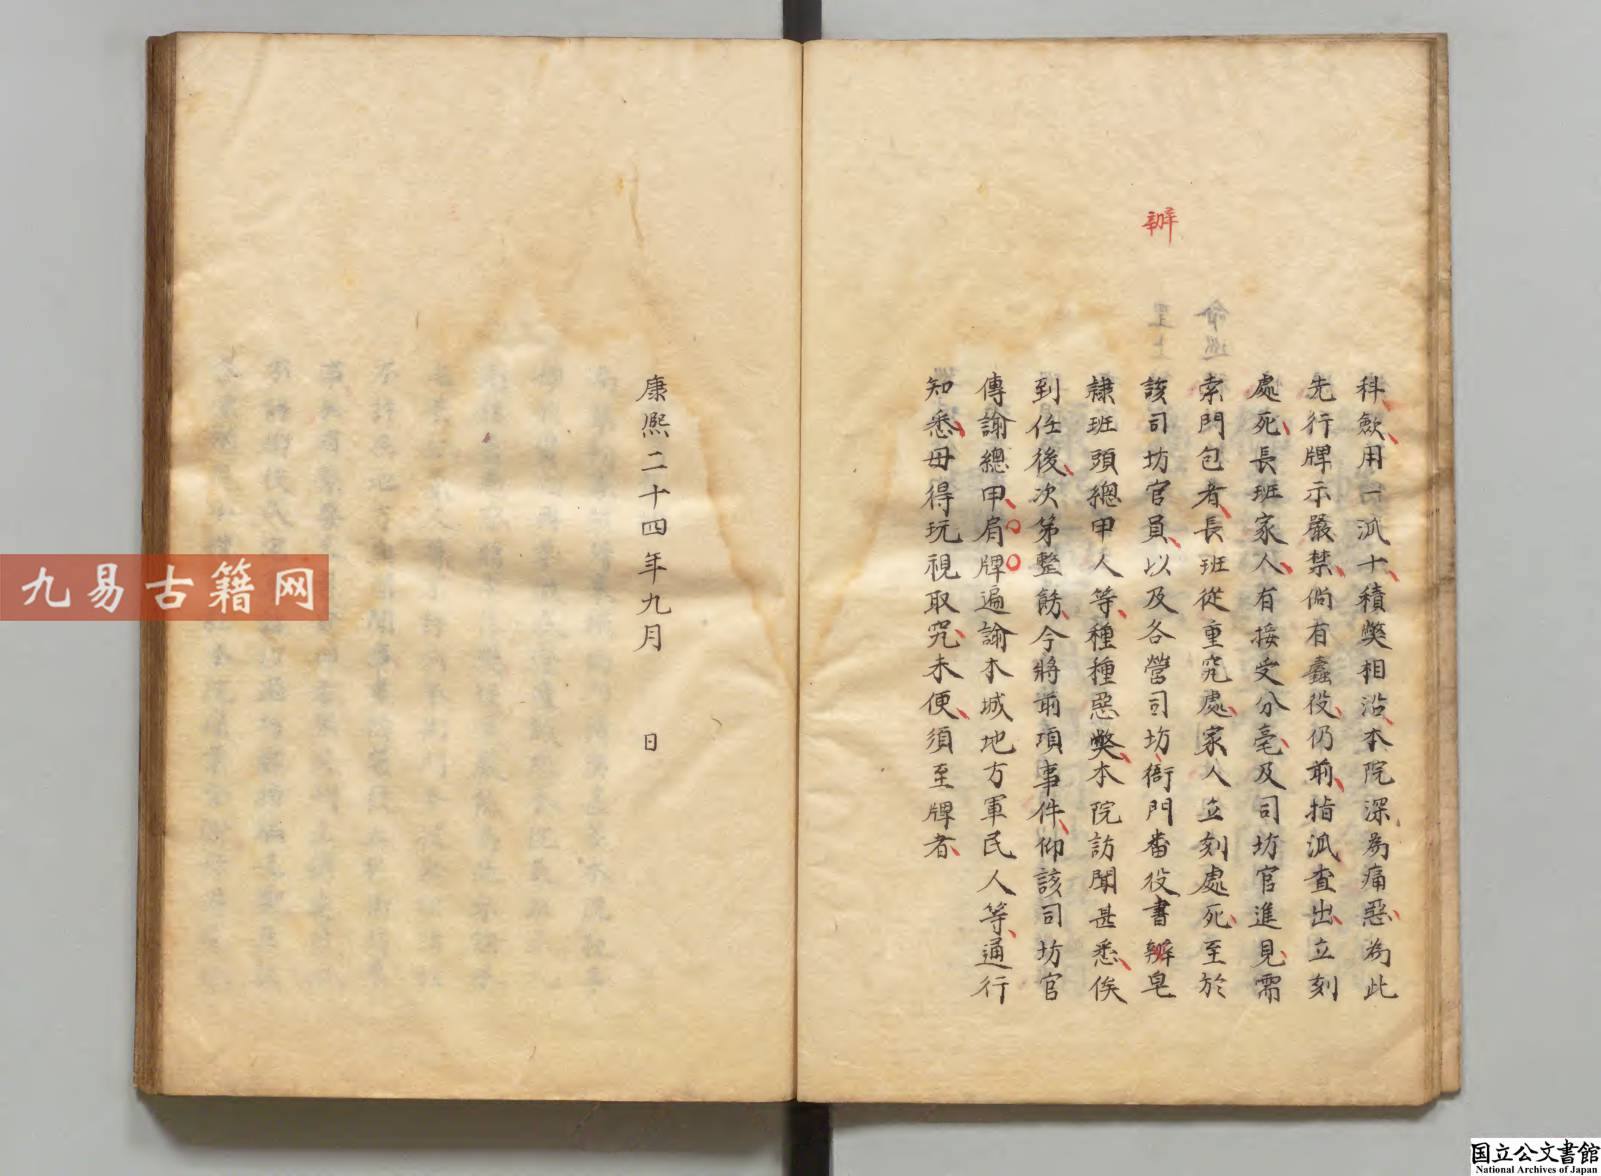 辦
科歛用一派十積獘相沿本院深為痛惡為此
先行牌示嚴禁倘有蠹役仍前指派查出立刻
處死長班家人有接受分毫及司坊官進見需
索門包者長班從重究處家人立刻處死至於
該司坊官員以及各營司坊衙門番役書辦皂
隸班頭總甲人等種種惡獘本院訪聞甚悉俟
到任後次第整飭今將前項事件仰該司坊官
傳諭總甲肩牌遍諭本城地方軍民人等通行
知悉毋得玩視取究未便須至牌者
康熙二十四年九月 日
九易古籍网
国立公文書館
National Archives of Japan